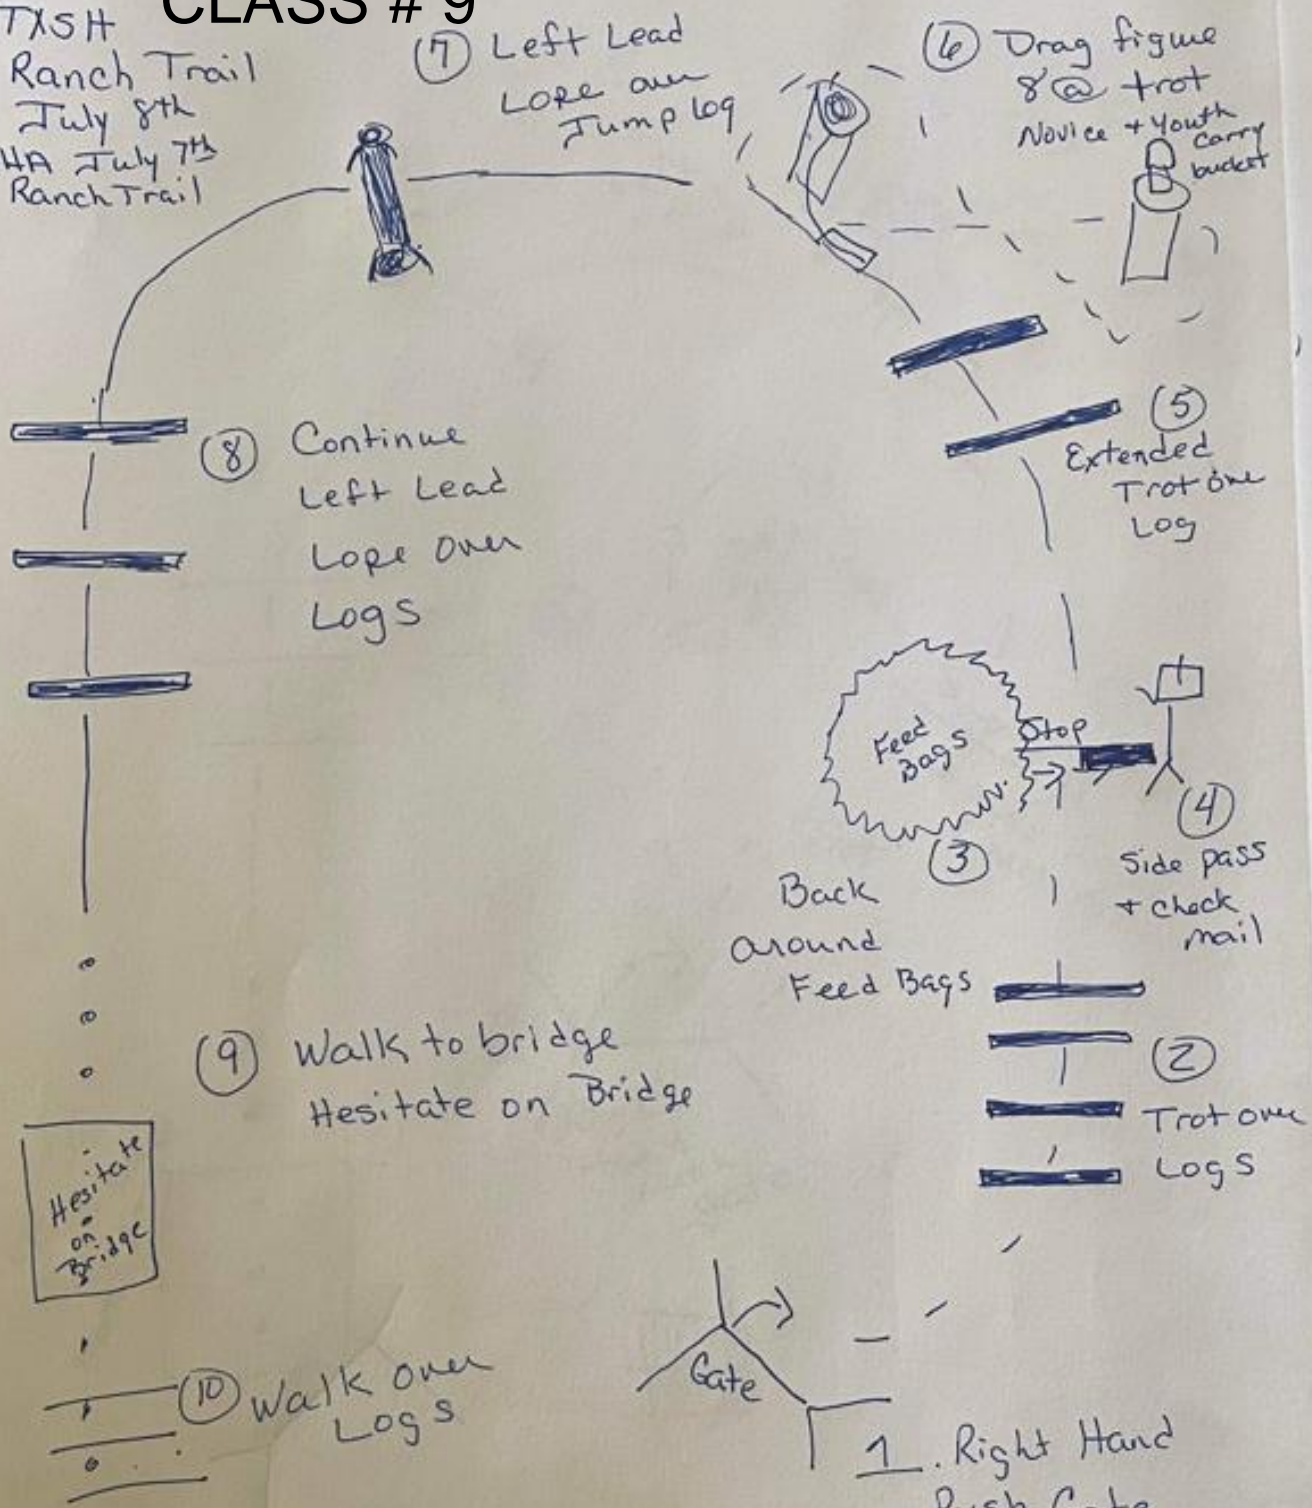 CLASS # 9
TXSH
Ranch Trail
July 8th
HA July 7th
Ranch Trail
7 Left Lead
Lope over
Jump log
6 Drag figure
8 @ trot
Novice + Youth
carry
bucket
5
Extended
Trot over
Log
8 Continue
Left Lead
Lope over
Logs
Feed
Bags
Stop
4
Side pass
+ check
mail
3
Back
around
Feed Bags
2
Trot over
Logs
9 Walk to bridge
Hesitate on Bridge
Hesitate
on
Bridge
10 Walk over
Logs
Gate
1. Right Hand
Push Gate